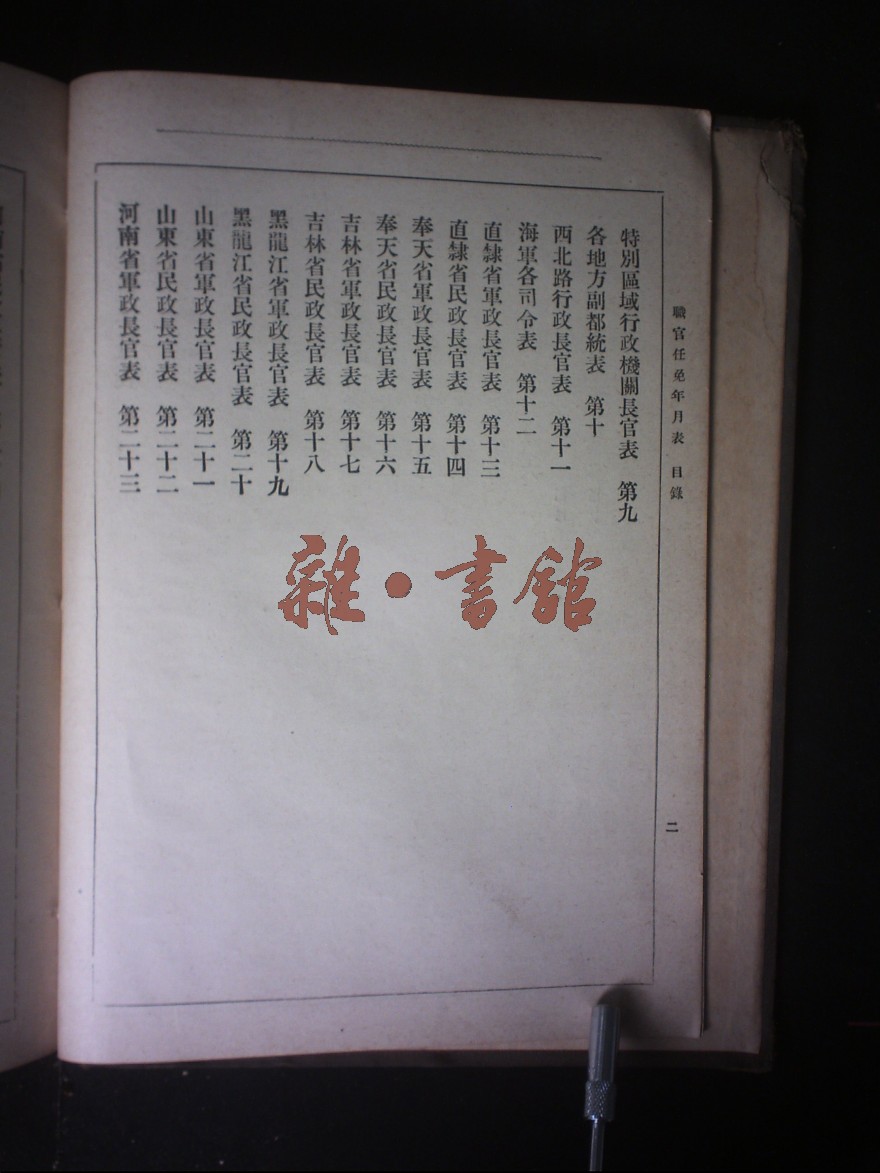 職官任免年月表　目錄
二
特別區域行政機關長官表　第九
各地方副都統表　第十
西北路行政長官表　第十一
海軍各司令表　第十二
直隸省軍政長官表　第十三
直隸省民政長官表　第十四
奉天省軍政長官表　第十五
奉天省民政長官表　第十六
吉林省軍政長官表　第十七
吉林省民政長官表　第十八
黑龍江省軍政長官表　第十九
黑龍江省民政長官表　第二十
山東省軍政長官表　第二十一
山東省民政長官表　第二十二
河南省軍政長官表　第二十三
雜·書館